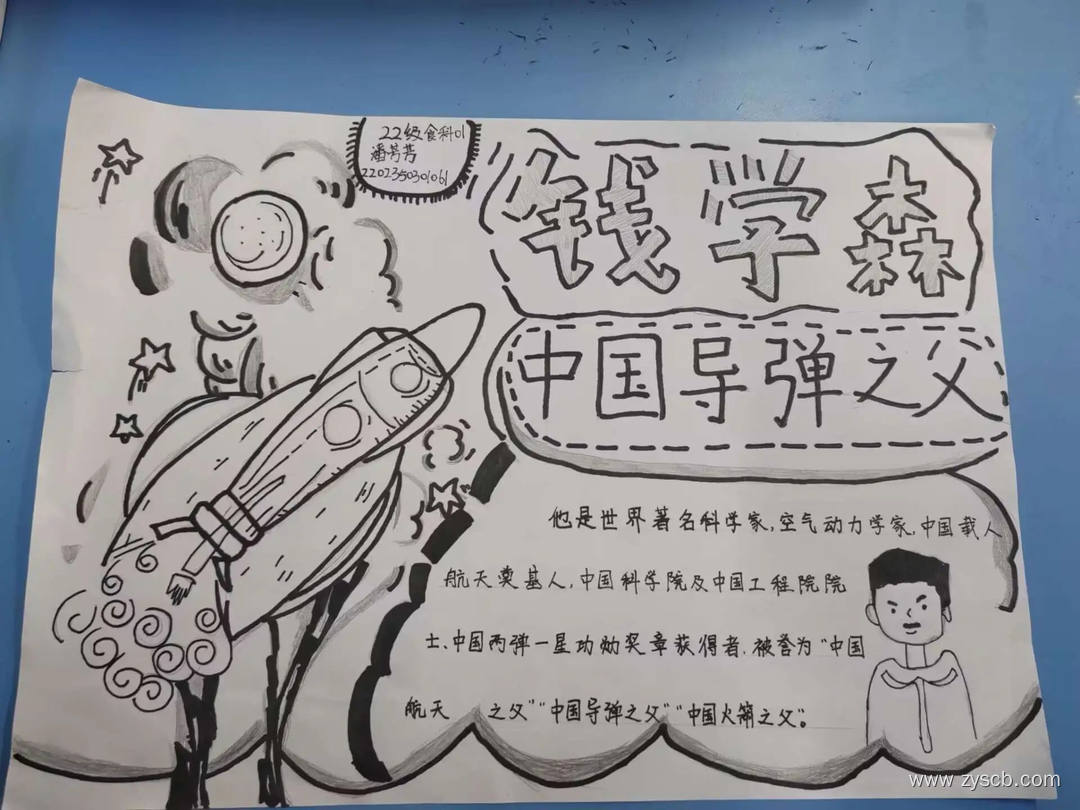 22级食科01
潘芳芳
2202350301061
钱学森
中国导弹之父
他是世界著名科学家,空气动力学家,中国载人
航天奠基人,中国科学院及中国工程院院
士、中国两弹一星功勋奖章获得者,被誉为“中国
航天 之父”“中国导弹之父”“中国火箭之父”。
www.zyscb.com